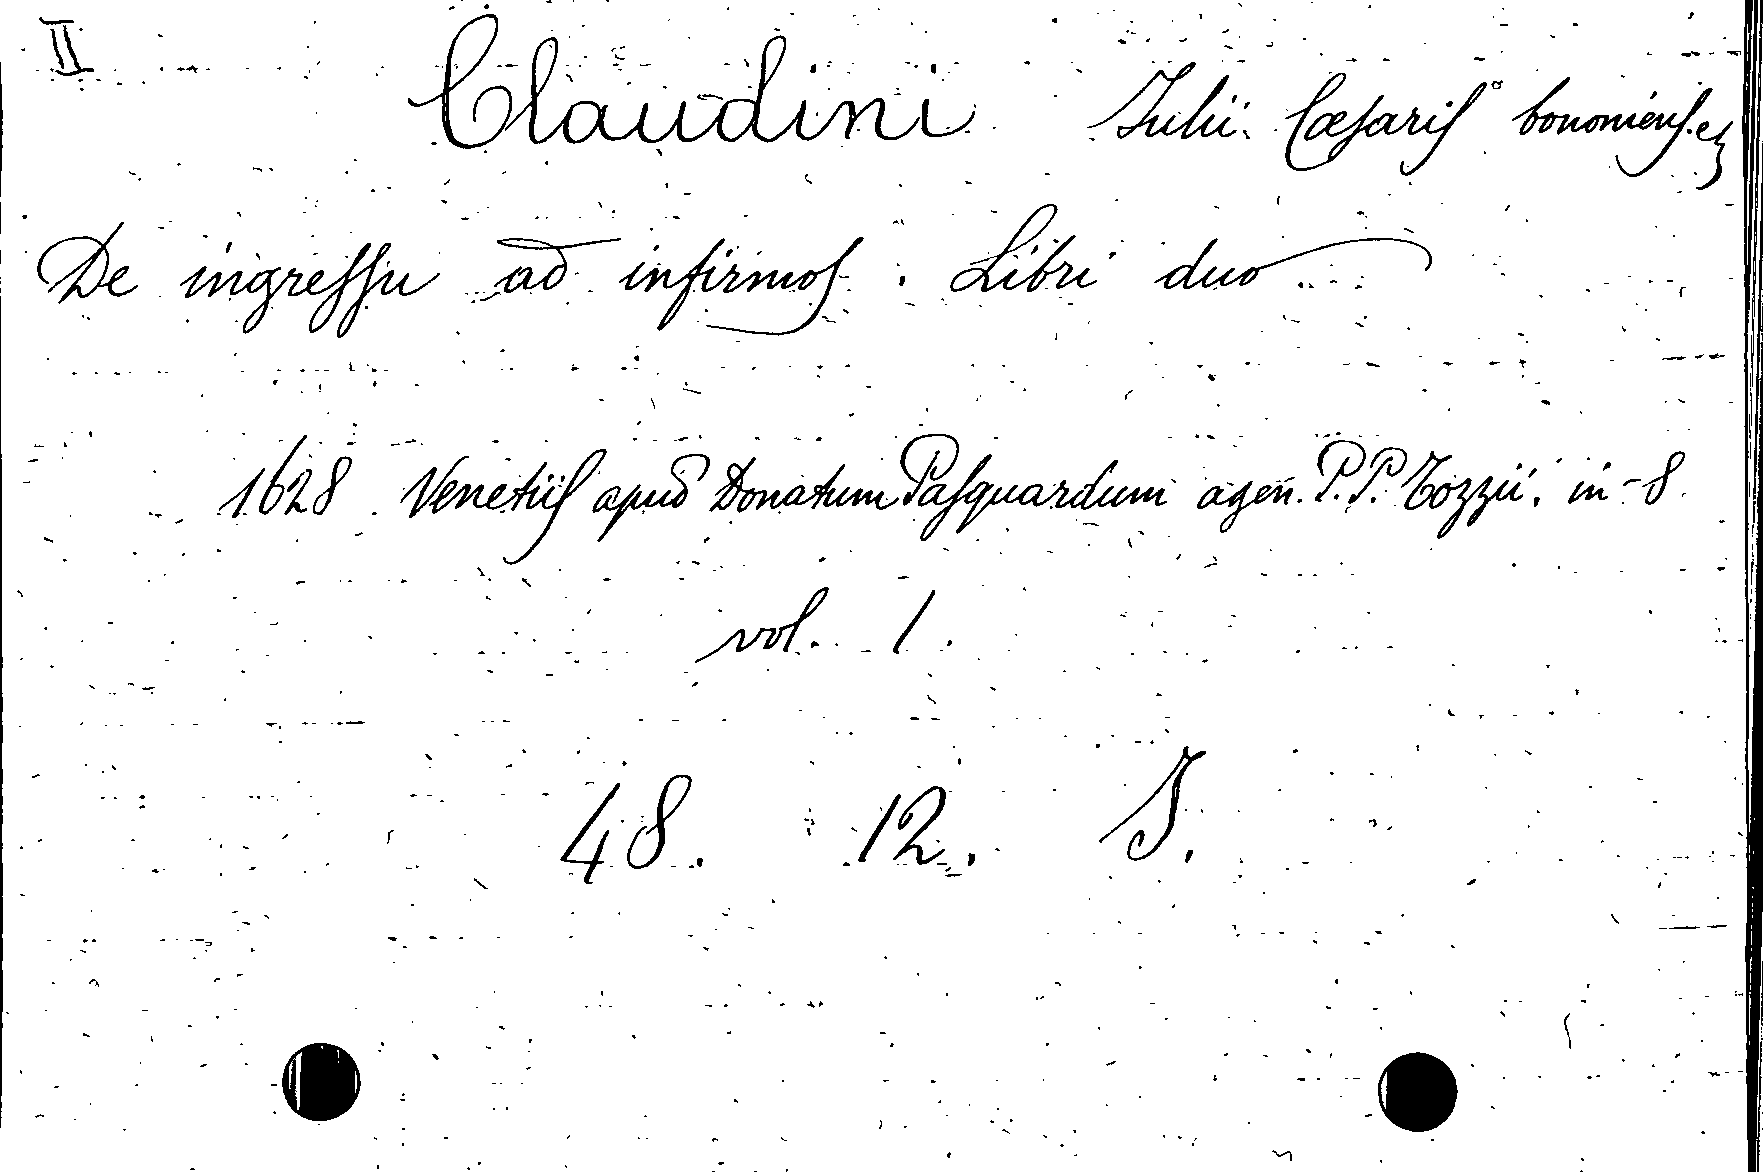 II
Claudini Iulii Cæsaris bononiens.es
De ingressu ad infirmos. Libri duo.
1628 Venetiis apud Donatum Pasquardum agen. P. P. Tozzii. in-8.
vol. 1.
48. 12. J.